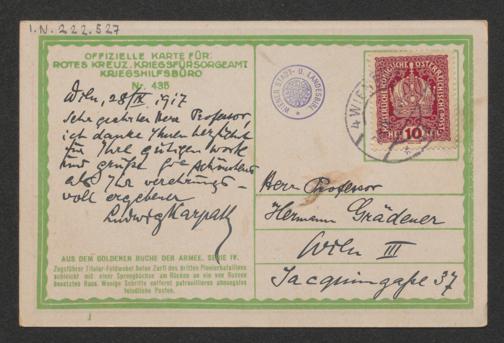 I.N. 222.527
OFFIZIELLE KARTE FÜR
ROTES KREUZ, KRIEGSFÜRSORGEAMT
KRIEGSHILFSBÜRO
Nr. 435
Wien, 28/IX 1917
Sehr geehrter Herr Professor,
ich danke Ihnen herzlichst
für Ihre gütigen Worte
und grüße Sie
als Ihr verehrungs-
voll ergebener
Ludwig Karpath
AUS DEM GOLDENEN BUCHE DER ARMEE, SERIE IV.
Zugsführer Titular-Feldwebel Anton Zarfl des dritten Pionierbataillons
schleicht mit einer Sprengbüchse am Rücken an ein von Russen
besetztes Haus. Wenige Schritte entfernt patrouillieren ahnungslos
feindliche Posten.
WIENER STADT- U. LANDESBIBL.
4 WIEN
10
Herrn Professor
Hermann Grädener
Wien III
Jacquingaße 37